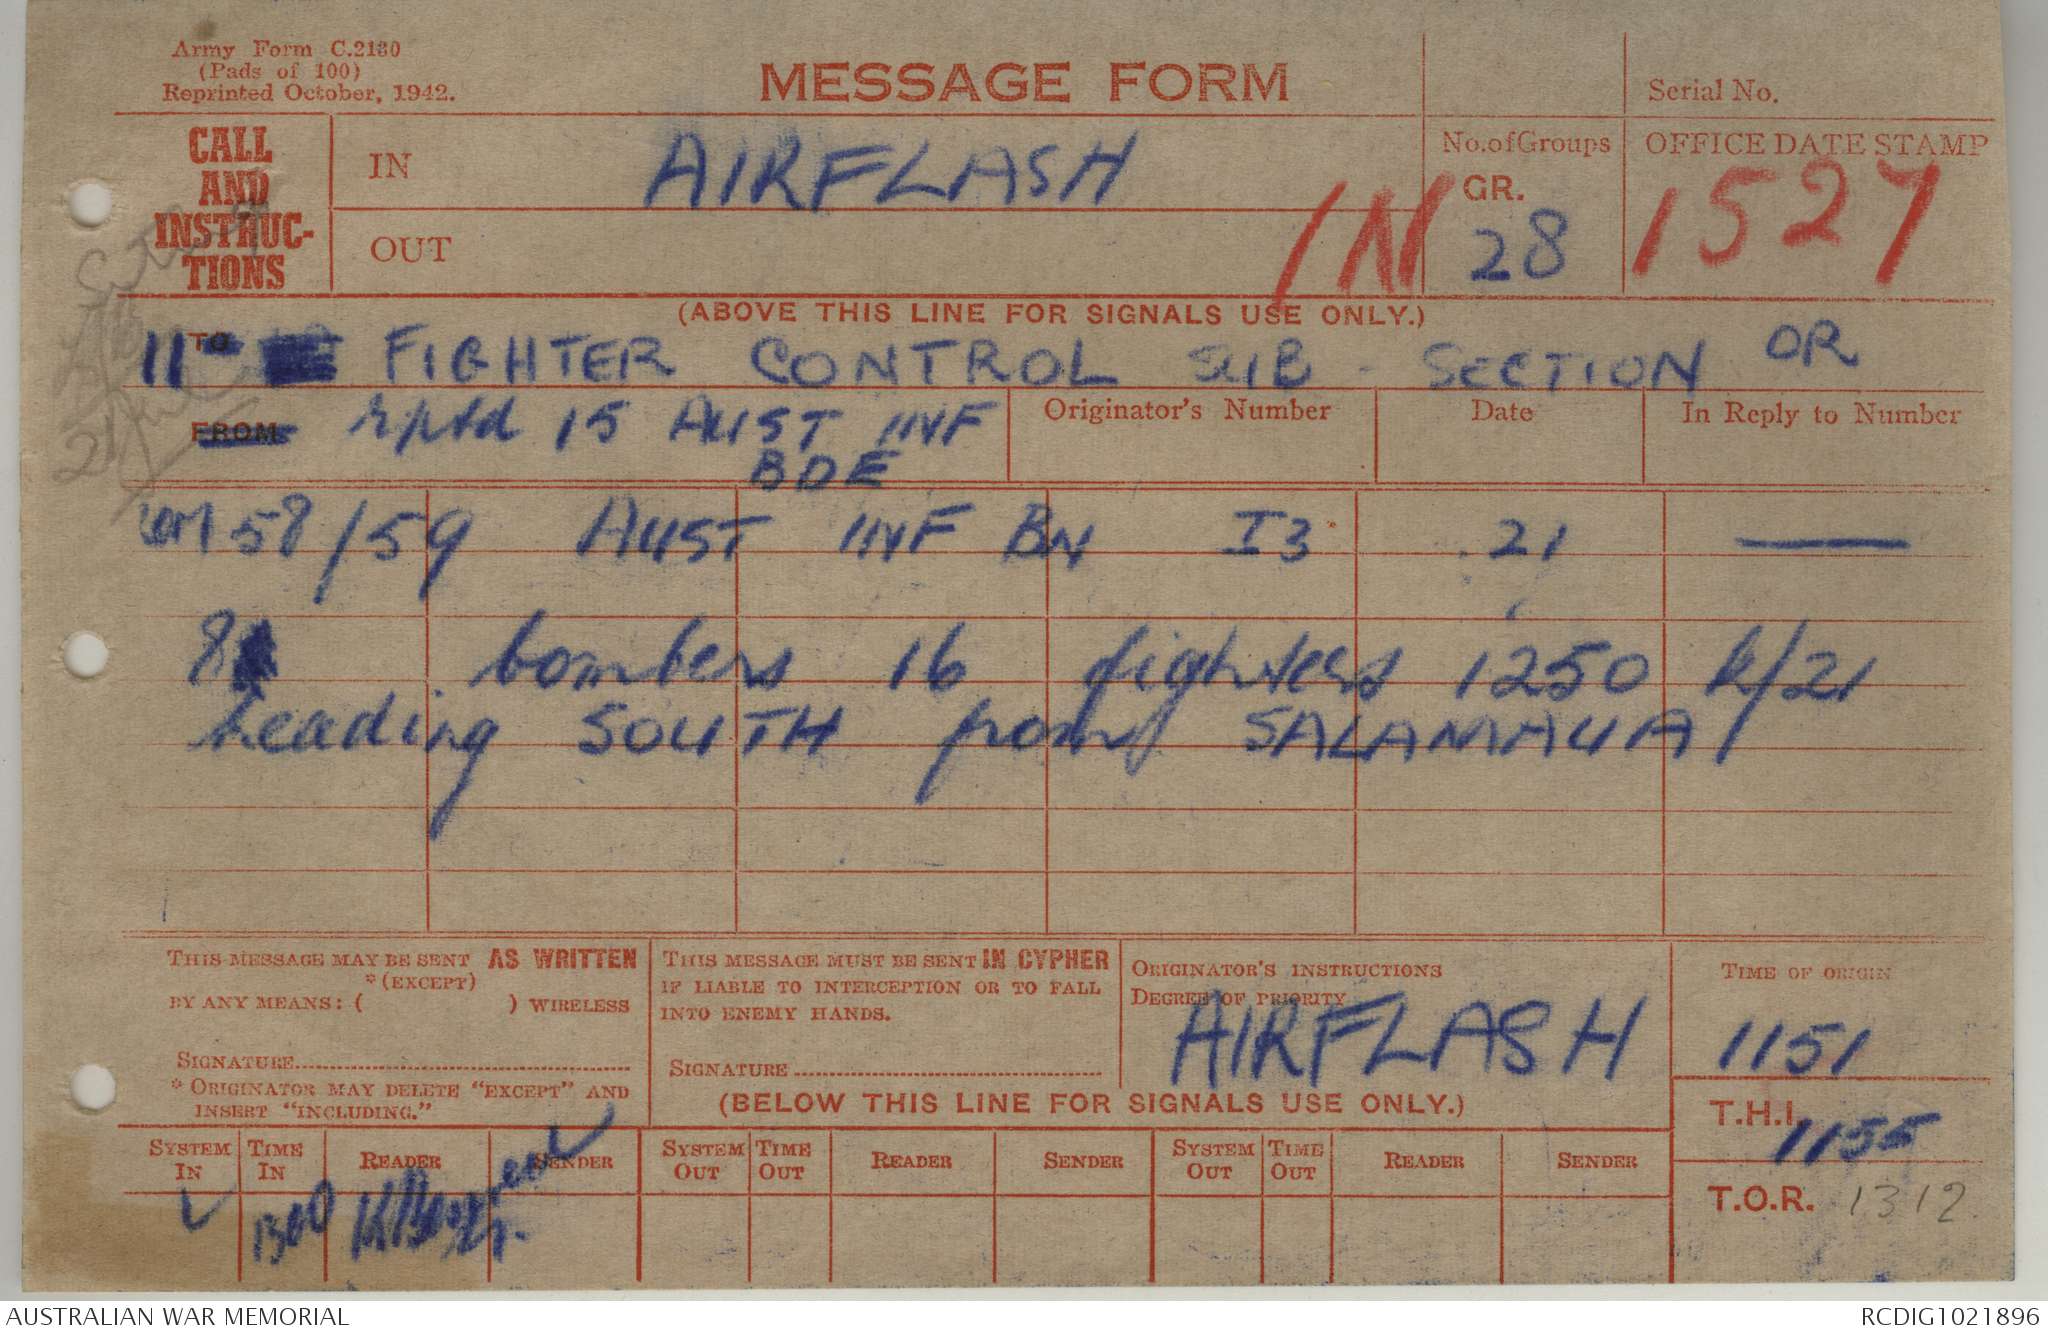 Army Form C.2130
(Pads of 100)
Reprinted October, 1942.
MESSAGE FORM
Serial No.
CALL
AND
INSTRUC-
TIONS
IN AIRFLASH
OUT
IN
No. of Groups
GR.
28
OFFICE DATE STAMP
1527
(ABOVE THIS LINE FOR SIGNALS USE ONLY.)
TO
11 FIGHTER CONTROL SUB-SECTION OR
FROM rptd 15 AUST INF
BDE
Originator's Number Date In Reply to Number
58/59 AUST INF BN I3 21 —
8 bombers 16 fighters 1250 K/21
heading SOUTH from SALAMAUA
THIS MESSAGE MAY BE SENT AS WRITTEN
*(EXCEPT)
BY ANY MEANS: ( ) WIRELESS
SIGNATURE
* ORIGINATOR MAY DELETE "EXCEPT" AND
INSERT "INCLUDING."
THIS MESSAGE MUST BE SENT IN CYPHER
IF LIABLE TO INTERCEPTION OR TO FALL
INTO ENEMY HANDS.
SIGNATURE
ORIGINATOR'S INSTRUCTIONS
DEGREE OF PRIORITY
AIRFLASH
TIME OF ORIGIN
1151
(BELOW THIS LINE FOR SIGNALS USE ONLY.)
T.H.I.
1155
T.O.R. 1312
SYSTEM IN TIME IN READER SENDER SYSTEM OUT TIME OUT READER SENDER SYSTEM OUT TIME OUT READER SENDER
1300
AUSTRALIAN WAR MEMORIAL
RCDIG1021896